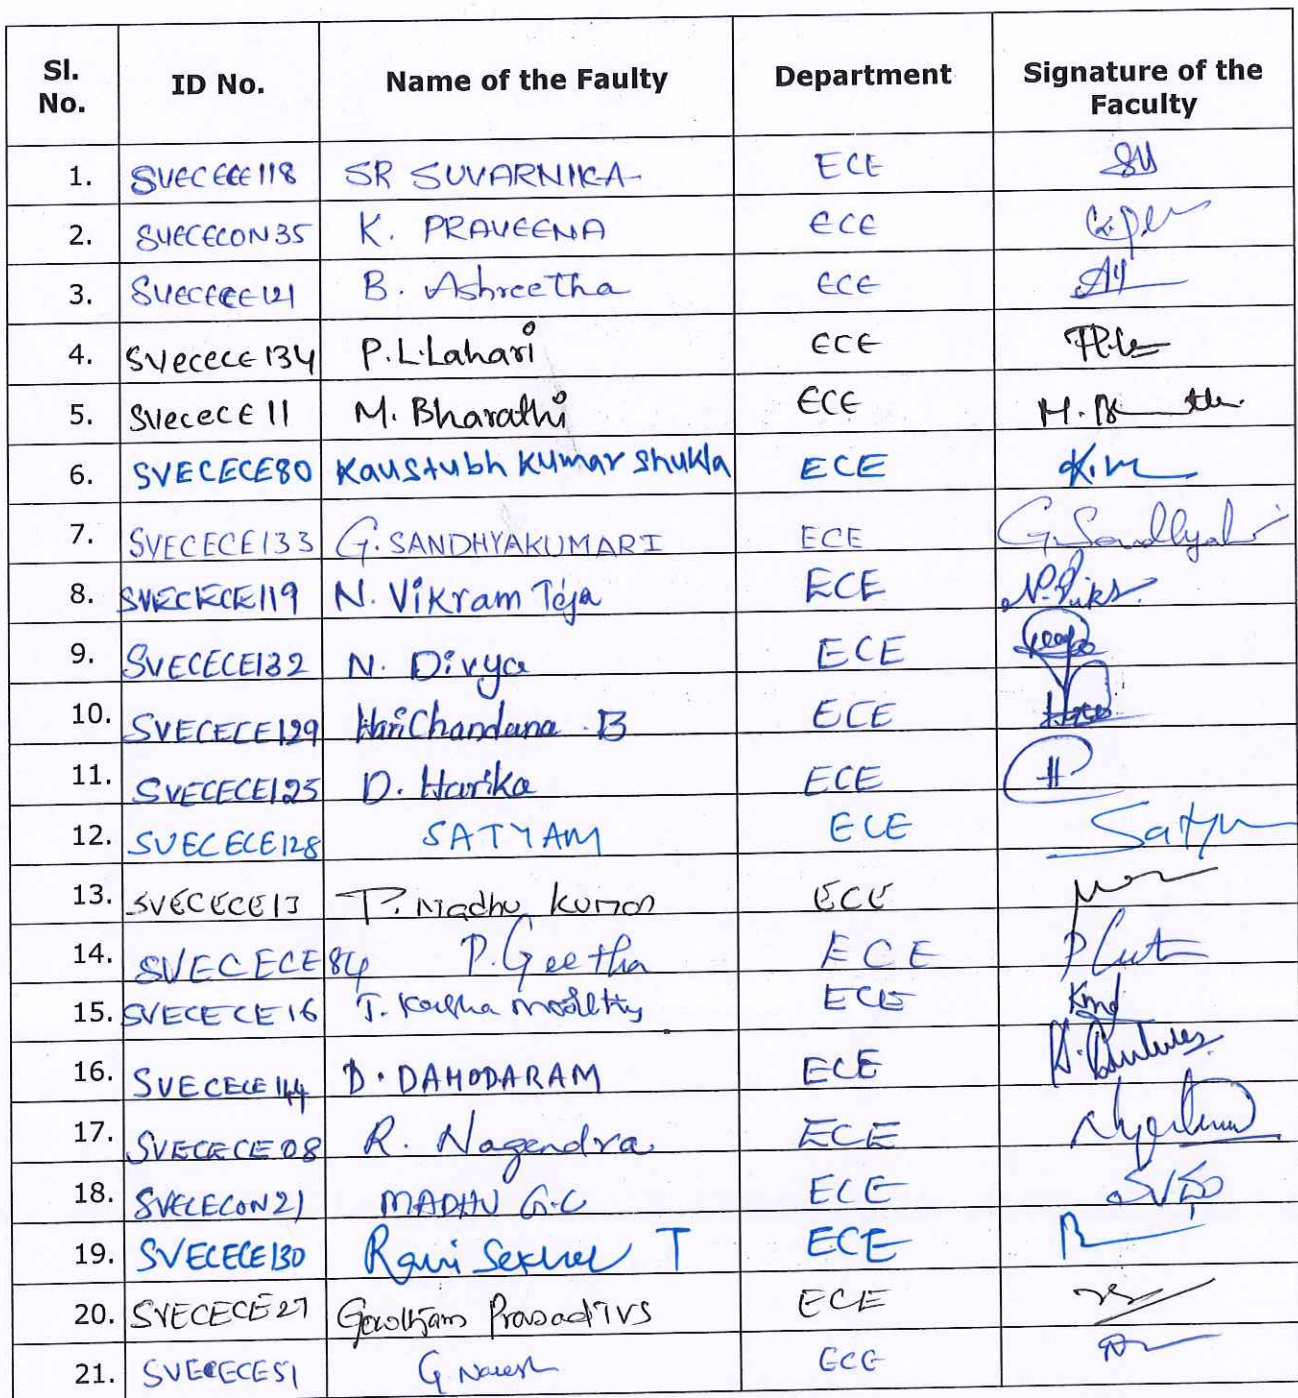 Sl. No. ID No. Name of the Faulty Department Signature of the Faculty
1. SVECECE118 SR SUVARNIKA ECE
2. SVECECON35 K. PRAVEENA ECE
3. SVECECE121 B. Ashreetha ECE
4. SVecece134 P.L.Lahari ECE
5. SVecece11 M. Bharathi ECE M.
6. SVECECE80 Kaustubh Kumar Shukla ECE
7. SVECECE133 G. SANDHYAKUMARI ECE G. Sandhya
8. SVECECE119 N. Vikram Teja ECE
9. SVECECE132 N. Divya ECE
10. SVECECE129 HariChandana B ECE
11. SVECECE125 D. Harika ECE H
12. SVECECE128 SATYAM ECE Satyam
13. SVECECE13 P. Madhu Kumar ECE
14. SVECECE84 P. Geetha ECE
15. SVECECE16 T. Krishna Moorthy ECE
16. SVECECE144 D. DAMODARAM ECE
17. SVECECE08 R. Nagendra ECE
18. SVECECON21 MADHU G.C ECE
19. SVECECE130 Ravi Sekhar T ECE
20. SVECECE27 Gowtham Prasad TVS ECE
21. SVECECE51 G Naresh ECE